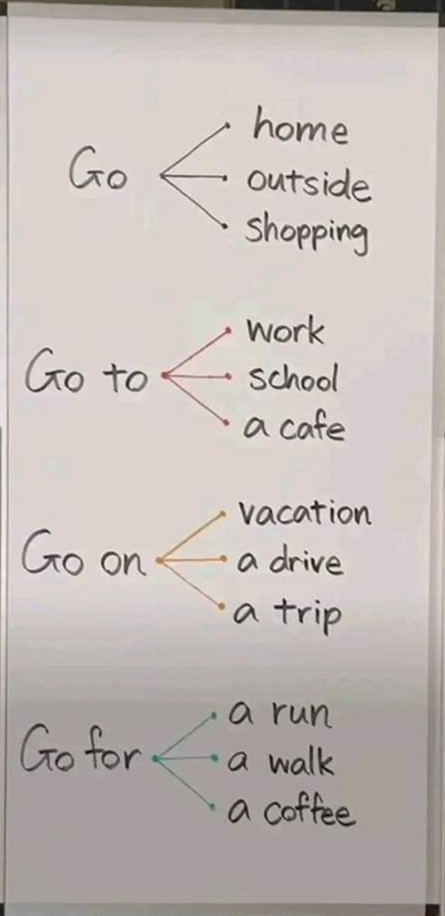 Go
home
outside
shopping
Go to
work
school
a cafe
Go on
vacation
a drive
a trip
Go for
a run
a walk
a coffee